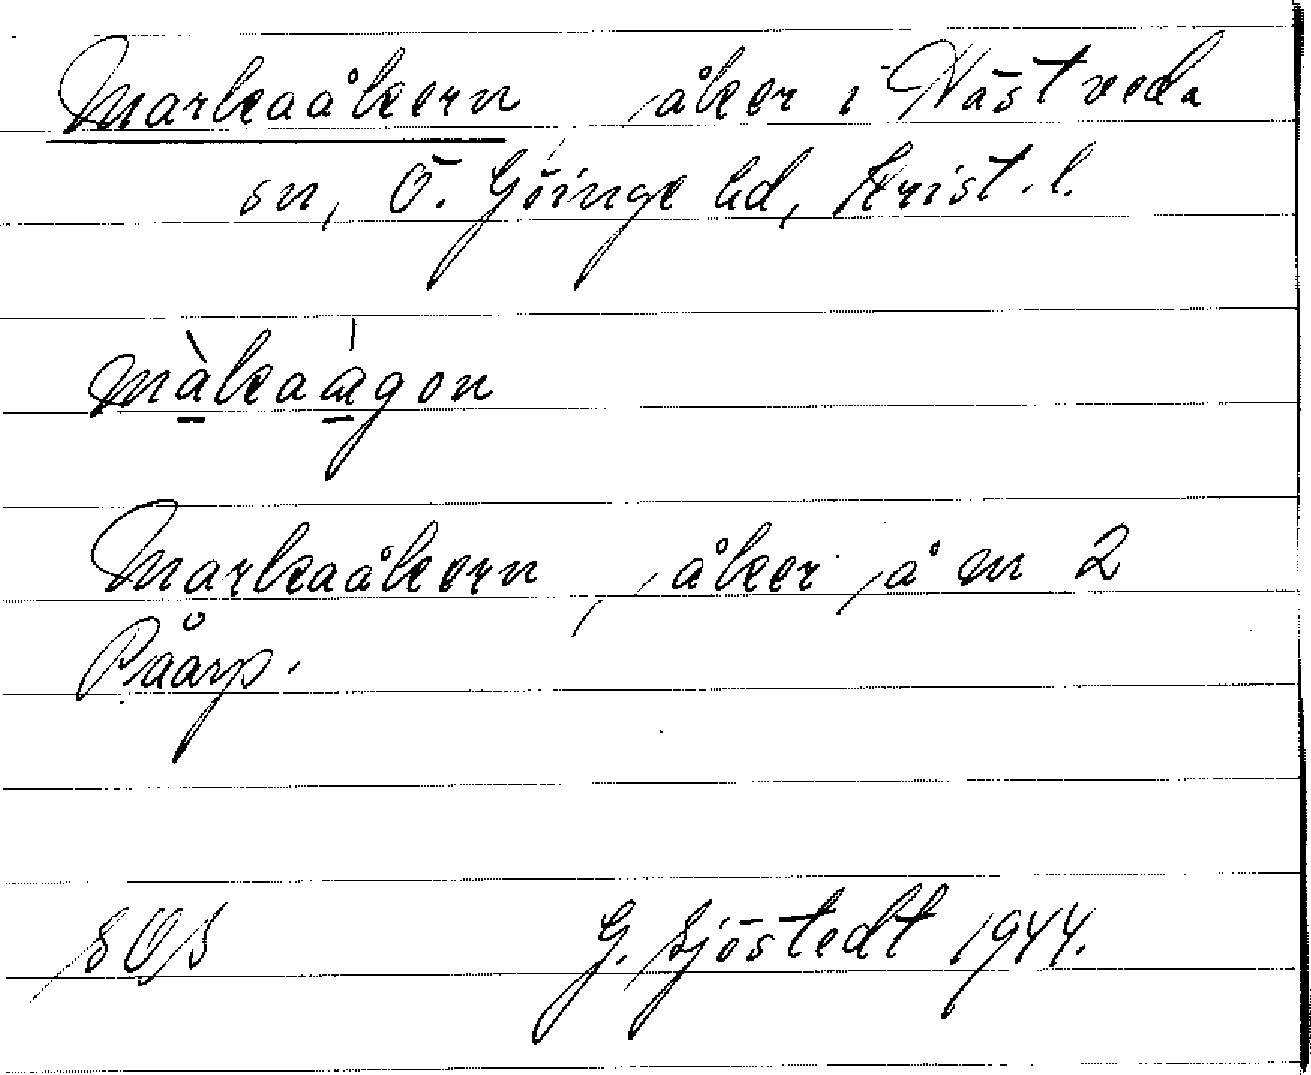 Markaåkern, åker i Hästveda
sn, Ö. Göinge hd, Krist. l.
màkaágon
Markaåkern, åker å m 2
Påarp.
G. Sjöstedt 1944.